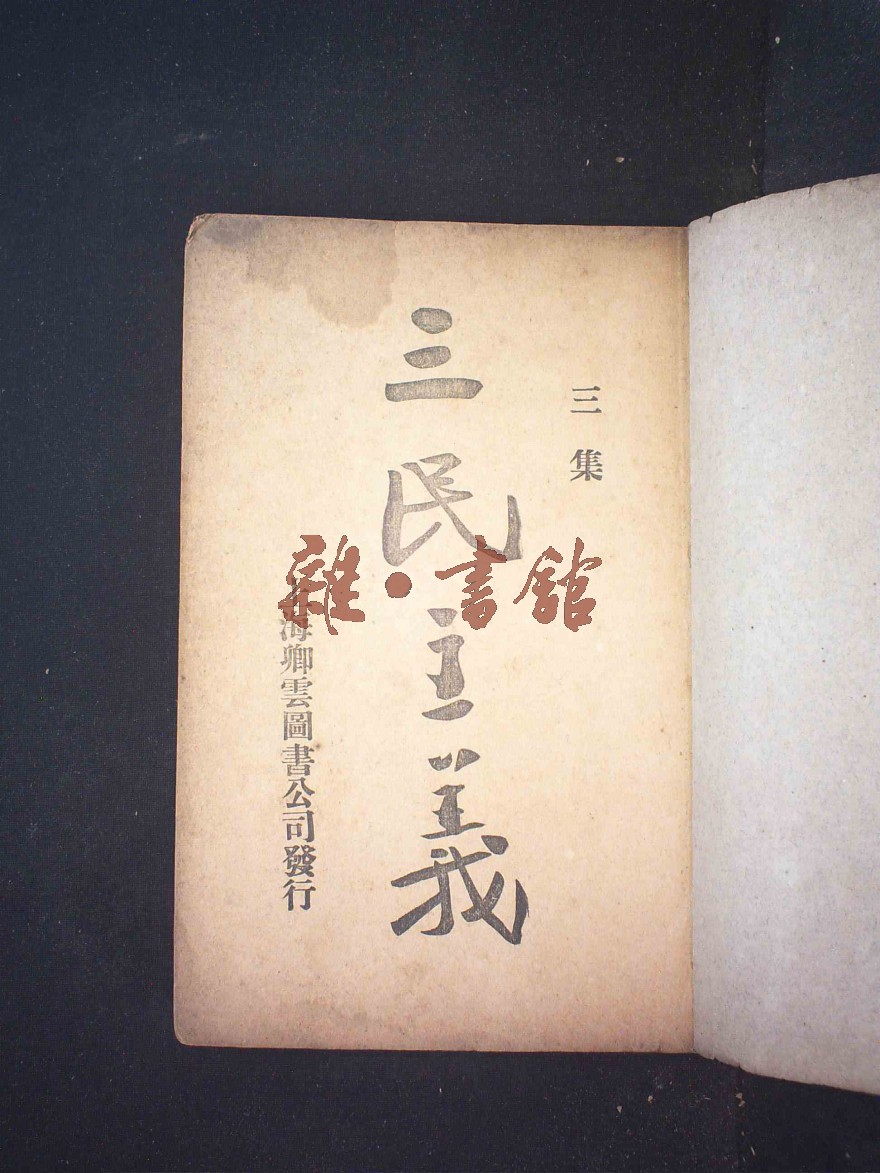 三集
三民主義
海卿雲圖書公司發行
雜·書館